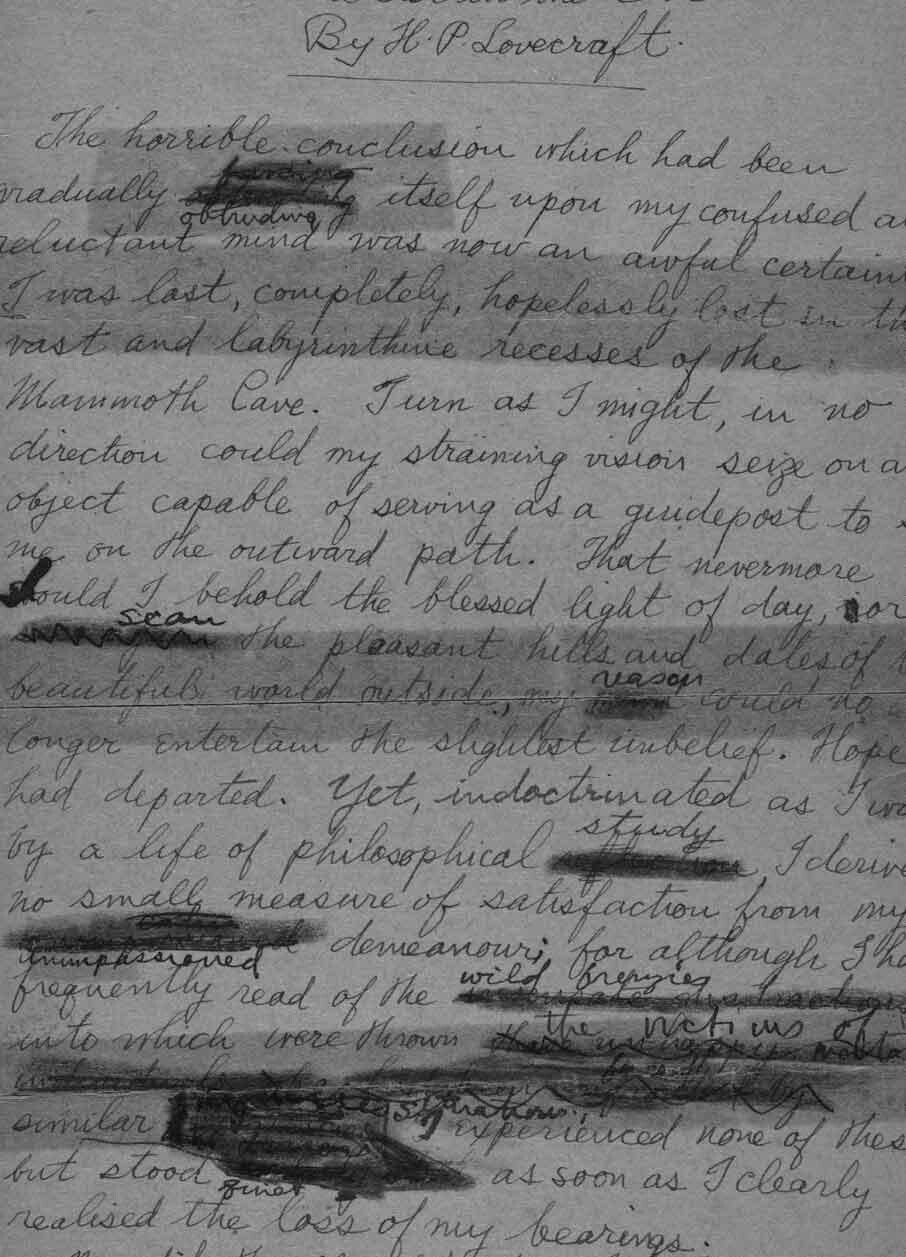 By H. P. Lovecraft.
The horrible conclusion which had been
gradually obtruding itself upon my confused
reluctant mind was now an awful
I was lost, completely, hopelessly lost in
vast and labyrinthine recesses of the
Mammoth Cave. Turn as I might, in no
direction could my straining vision seize on
object capable of serving as a guidepost to
me on the outward path. That nevermore
should I behold the blessed light of day, or
scan the pleasant hills and dales of
beautiful world outside, my reason could no
longer entertain the slightest unbelief. Hope
had departed. Yet, indoctrinated as I
by a life of philosophical study, I
no small measure of satisfaction from my
unimpassioned demeanour; for although I
frequently read of the wild frenzies
into which were thrown the victims of
similar situations, I experienced none of
but stood quiet as soon as I clearly
realised the loss of my bearings.